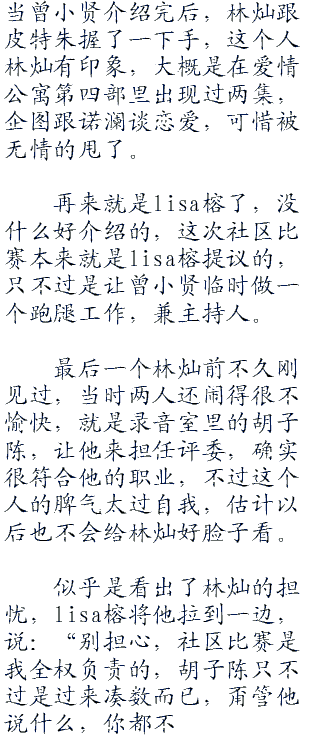 当曾小贤介绍完后，林灿跟
皮特朱握了一下手，这个人
林灿有印象，大概是在爱情
公寓第四部里出现过两集，
企图跟诺澜谈恋爱，可惜被
无情的甩了。
再来就是lisa榕了，没
什么好介绍的，这次社区比
赛本来就是lisa榕提议的，
只不过是让曾小贤临时做一
个跑腿工作，兼主持人。
最后一个林灿前不久刚
见过，当时两人还闹得很不
愉快，就是录音室里的胡子
陈，让他来担任评委，确实
很符合他的职业，不过这个
人的脾气太过自我，估计以
后也不会给林灿好脸子看。
似乎是看出了林灿的担
忧，lisa榕将他拉到一边，
说：“别担心，社区比赛是
我全权负责的，胡子陈只不
过是过来凑数而已，甭管他
说什么，你都不